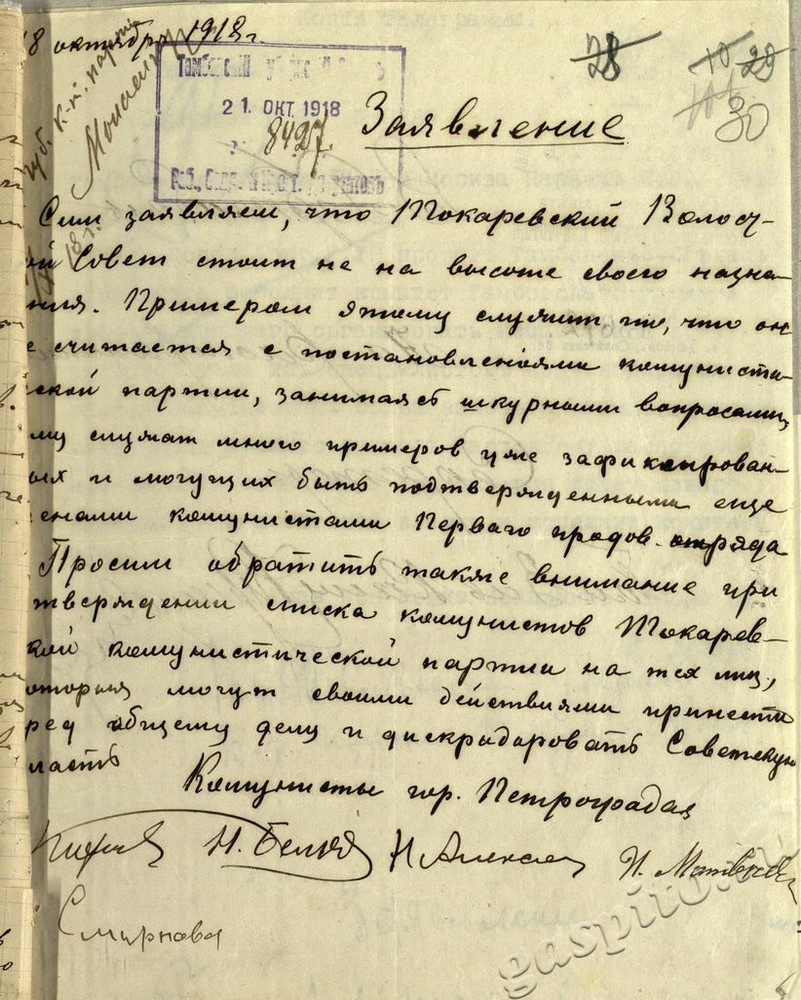 8 октября 1918 г.
губ. к-к. партия
28 10 29
30
Тамбовский
21. ОКТ 1918
8427.
Заявление
Сим заявляем, что Токаревский Волост-
ой Совет стоит не на высоте своего назна-
ния. Примером этому служит то, что он
е считается с постановлениями комунисти-
ской партии, занимаясь шкурными вопросами,
му служат много примеров уже зафиксирован-
ых и могущих быть подтвержденными еще
енами комунистами Перваго продов. отряда
Просим обратить также внимание при
тверждении списка комунистов Токарев-
кой комунистической партии на тех лиц,
оторыя могут своими действиями принести
ред общему делу и дискридировать Советскую
ласть
Комунисты гор. Петрограда
Н. Белов Н Алексеев И. Матвеев
Смирнова
gaspito.